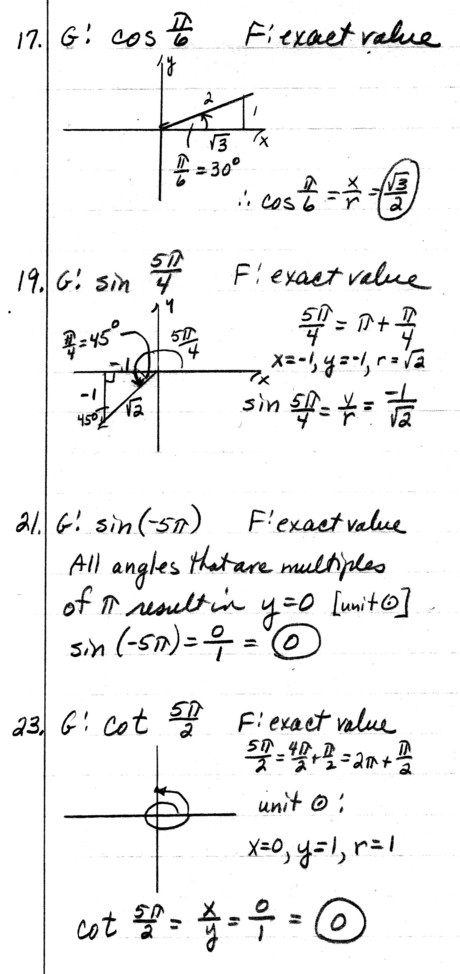 17. G: cos π/6 F: exact value
y
2
1
√3
x
π/6 = 30°
∴ cos π/6 = x/r = √3/2
19. G: sin 5π/4 F: exact value
y
π/4 = 45°
5π/4
5π/4 = π + π/4
-1
x
x=-1, y=-1, r=√2
-1
45°
√2
sin 5π/4 = y/r = -1/√2
21. G: sin(-5π) F: exact value
All angles that are multiples
of π result in y=0 [unit ⊙]
sin (-5π) = 0/1 = 0
23. G: cot 5π/2 F: exact value
5π/2 = 4π/2 + π/2 = 2π + π/2
unit ⊙:
x=0, y=1, r=1
cot 5π/2 = x/y = 0/1 = 0